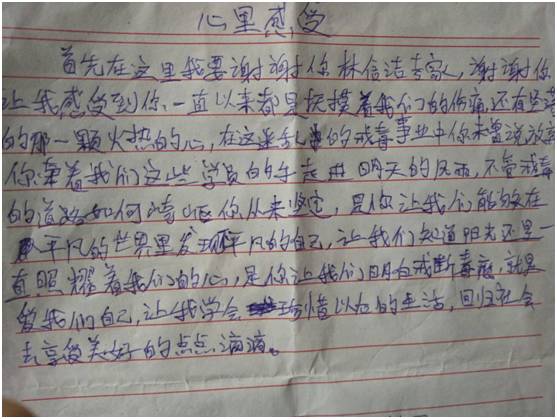 心里感受
首先在这里我要谢谢你林信洁专家,谢谢你
让我感受到你一直以来都是抚摸着我们的伤痛,还有
的那一颗火热的心,在这的戒毒事业中你未曾说放弃
你牵着我们这些学员的手走进明天的风雨,不管戒毒
的道路如何崎岖你从来坚定,是你让我们能够在
平凡的世界里发现平凡的自己,让我们知道阳光还是一
直照耀着我们的心,是你让我们明白戒断毒瘾,就是
爱我们自己,让我学会珍惜以后的生活,回归社会
去享受美好的点点滴滴。